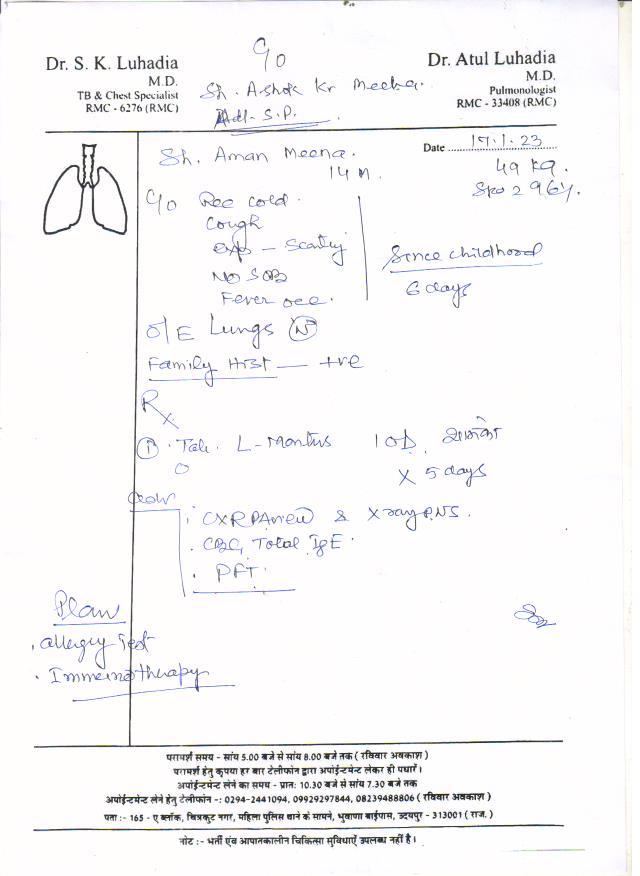 C/o
Dr. S. K. Luhadia
M.D.
TB & Chest Specialist
RMC - 6276 (RMC)
Sh. Ashok Kr Meena.
Adl. S.P.
Dr. Atul Luhadia
M.D.
Pulmonologist
RMC - 33408 (RMC)
Sh. Aman Meena.
14 M.
Date 17.1.23
49 kg.
SPO2 96%.
C/o Rec cold.
Cough
exp - Scanty
NO SOB
Fever occ.
Since childhood
6 days
O/E Lungs N
Family Hist — +ve
Rx
① Tab. L-Montus 1 OD शाम को
X 5 days
CXR PA view & X ray PNS.
. CBC, Total IgE.
. PFT.
Plan
. Allergy Test
. Immunotherapy
परामर्श समय - सांय 5.00 बजे से सांय 8.00 बजे तक ( रविवार अवकाश )
परामर्श हेतु कृपया हर बार टेलीफोन द्वारा अपॉईन्टमेन्ट लेकर ही पधारें।
अपॉईन्टमेन्ट लेने का समय - प्रातः 10.30 बजे से सांय 7.30 बजे तक
अपॉईन्टमेन्ट लेने हेतु टेलीफोन -: 0294-2441094, 09929297844, 08239488806 ( रविवार अवकाश )
पता :- 165 - ए ब्लॉक, चित्रकुट नगर, महिला पुलिस थाने के सामने, भुवाणा बाईपास, उदयपुर - 313001 ( राज. )
नोट :- भर्ती एंव आपातकालीन चिकित्सा सुविधाऐं उपलब्ध नहीं है।